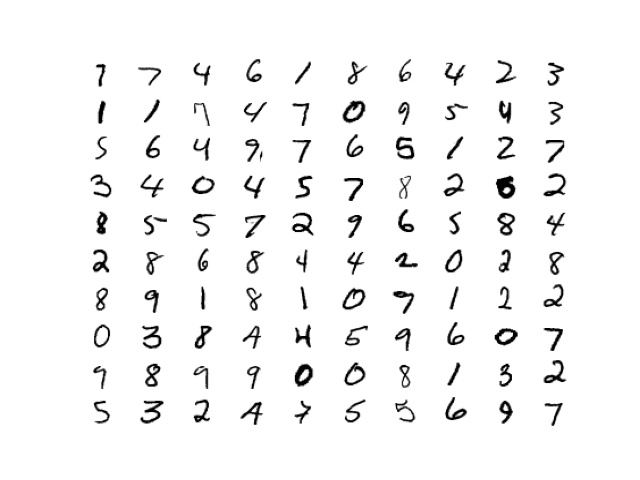 7 7 4 6 1 8 6 4 2 3
1 1 7 4 7 0 9 5 4 3
5 6 4 9 7 6 5 1 2 7
3 4 0 4 5 7 8 2 5 2
8 5 5 7 2 9 6 5 8 4
2 8 6 8 4 4 2 0 2 8
8 9 1 8 1 0 7 1 2 2
0 3 8 4 4 5 9 6 0 7
9 8 9 9 0 0 8 1 3 2
5 3 2 4 7 5 5 6 9 7